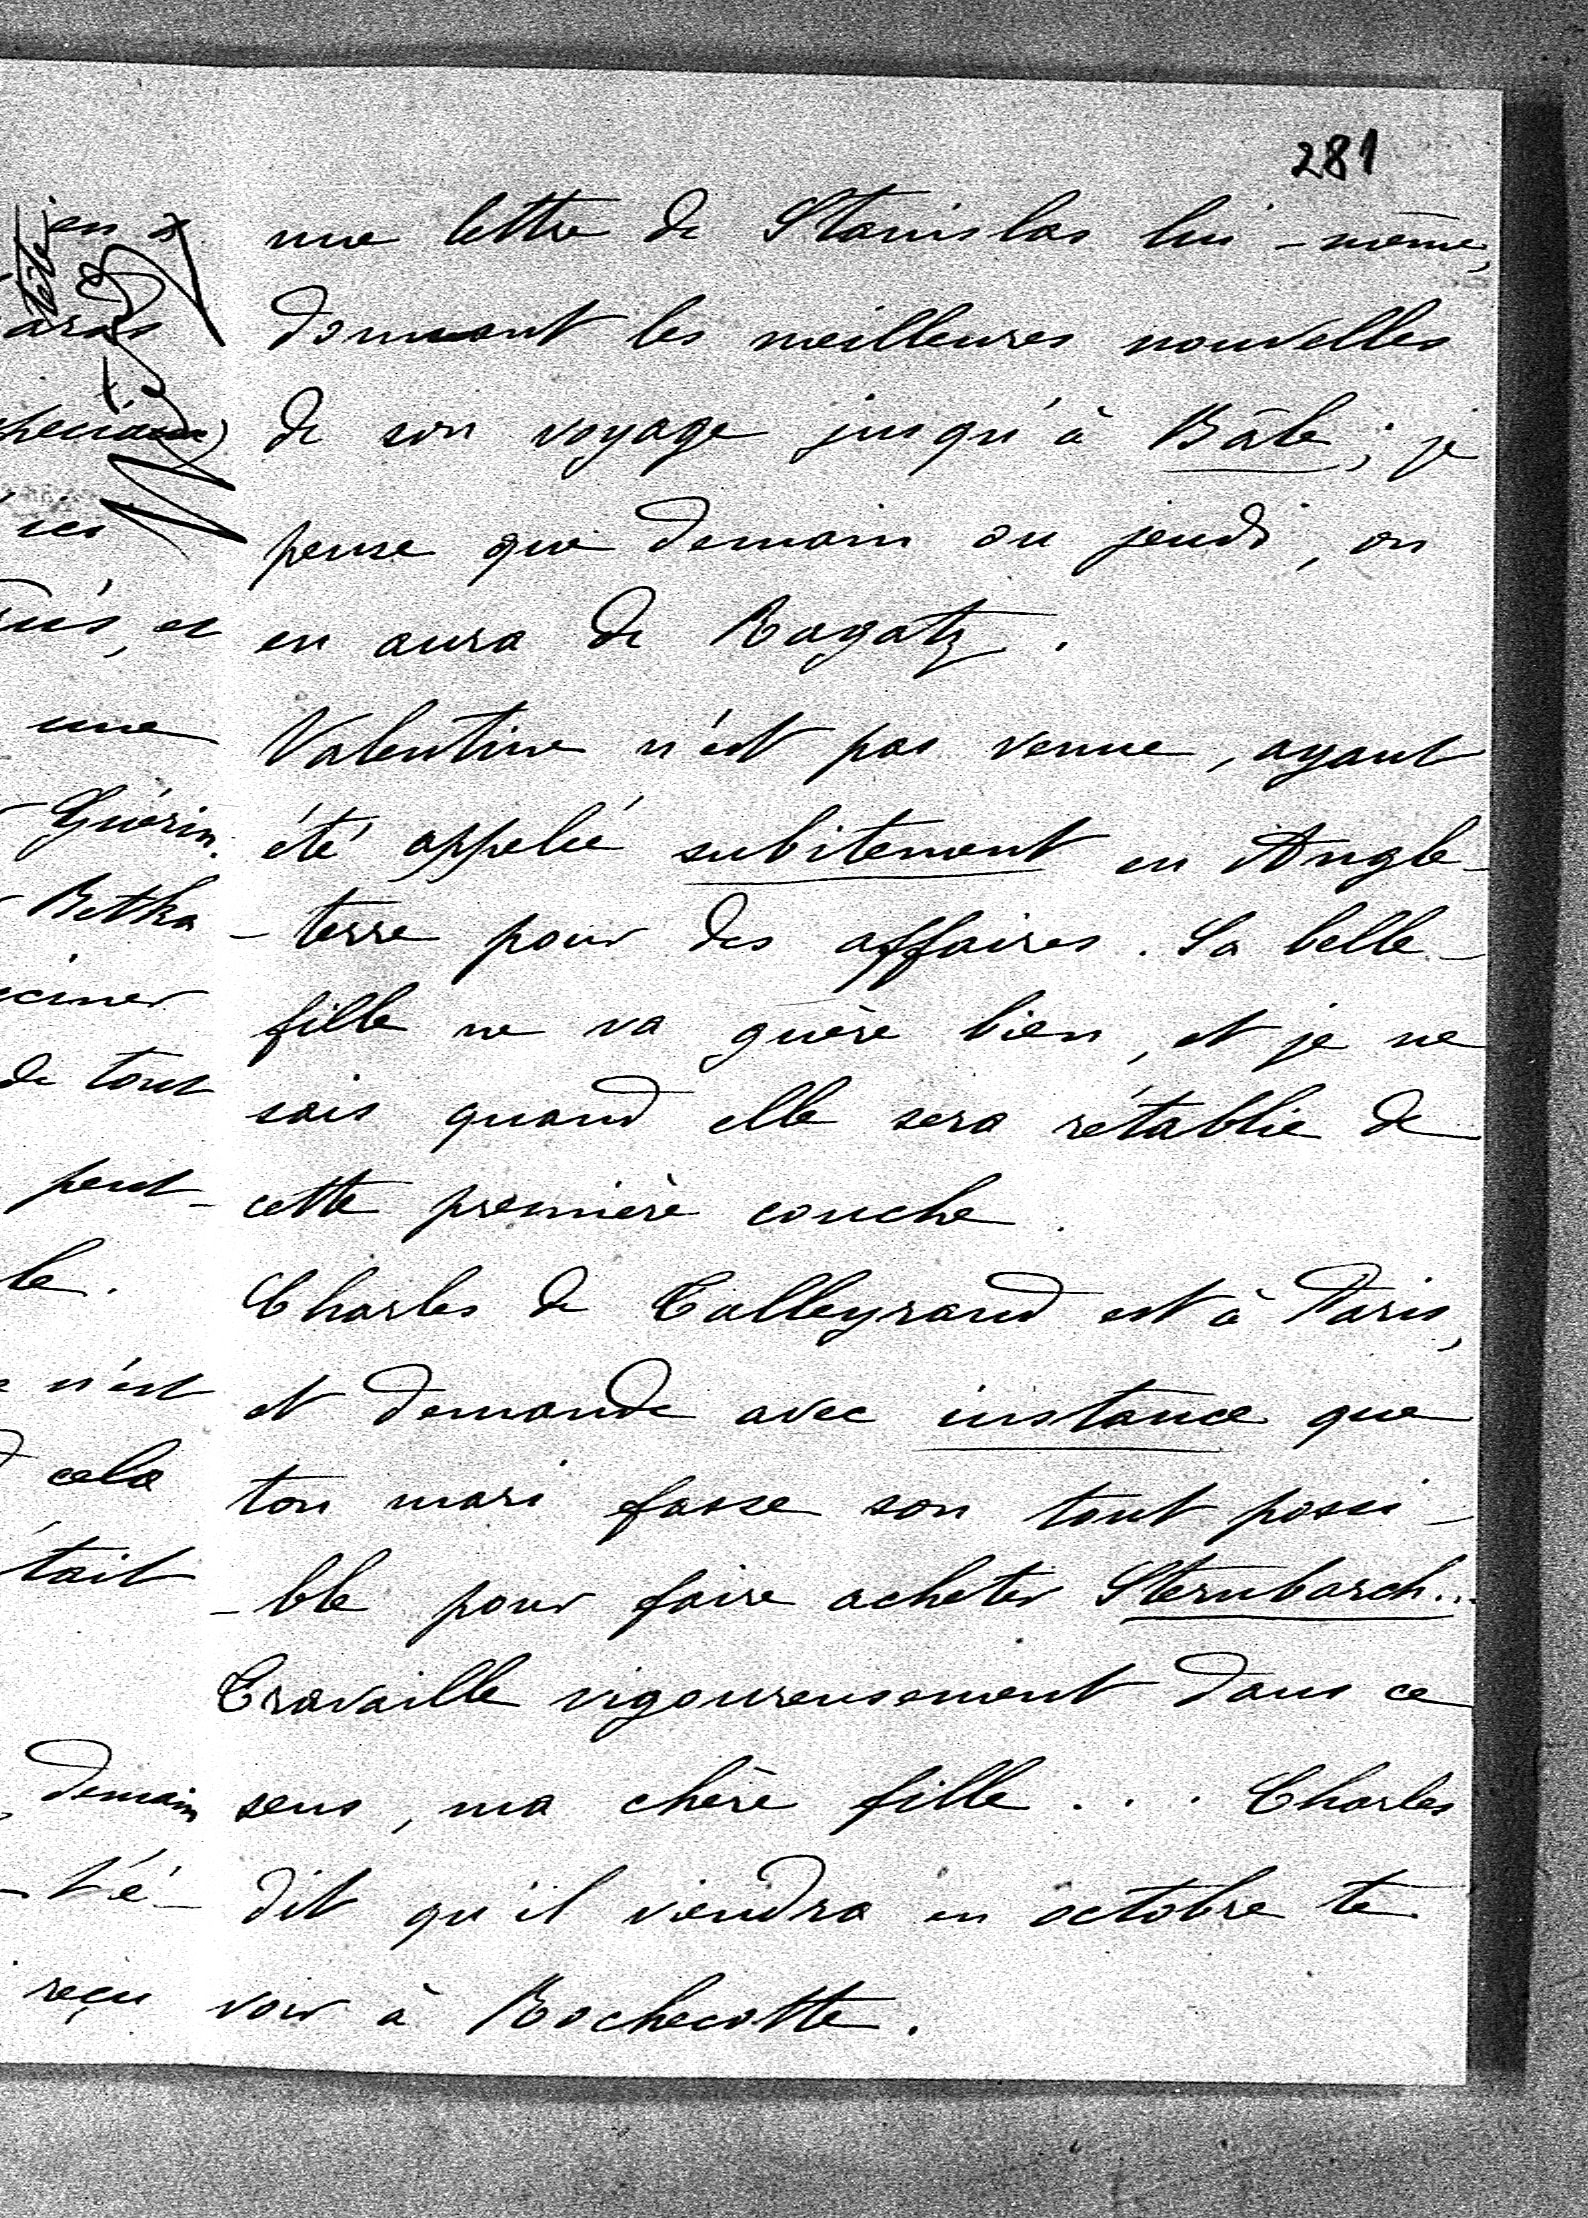 281
une lettre de Stanislas lui-même,
donnant les meilleures nouvelles
de son voyage jusqu'à Bâle ; je
pense que demain ou jeudi, on
en aura de Ragatz.
Valentine n'est pas venue, ayant
été appelée subitement en Angle-
-terre pour des affaires. Sa belle-
fille ne va guère bien, et je ne
sais quand elle sera rétablie de
cette première couche.
Charles de Talleyrand est à Paris,
et demande avec instance que
ton mari fasse son tout possi-
-ble pour faire acheter Sternbarch...
Travaille vigoureusement dans ce
sens, ma chère fille... Charles
dit qu'il viendra en octobre te
voir à Rochecotte.
en
ses
une
Guérin.
Betka
de tout
peut-
le.
n'est
cela
tait
demain
-t'é-
reçu